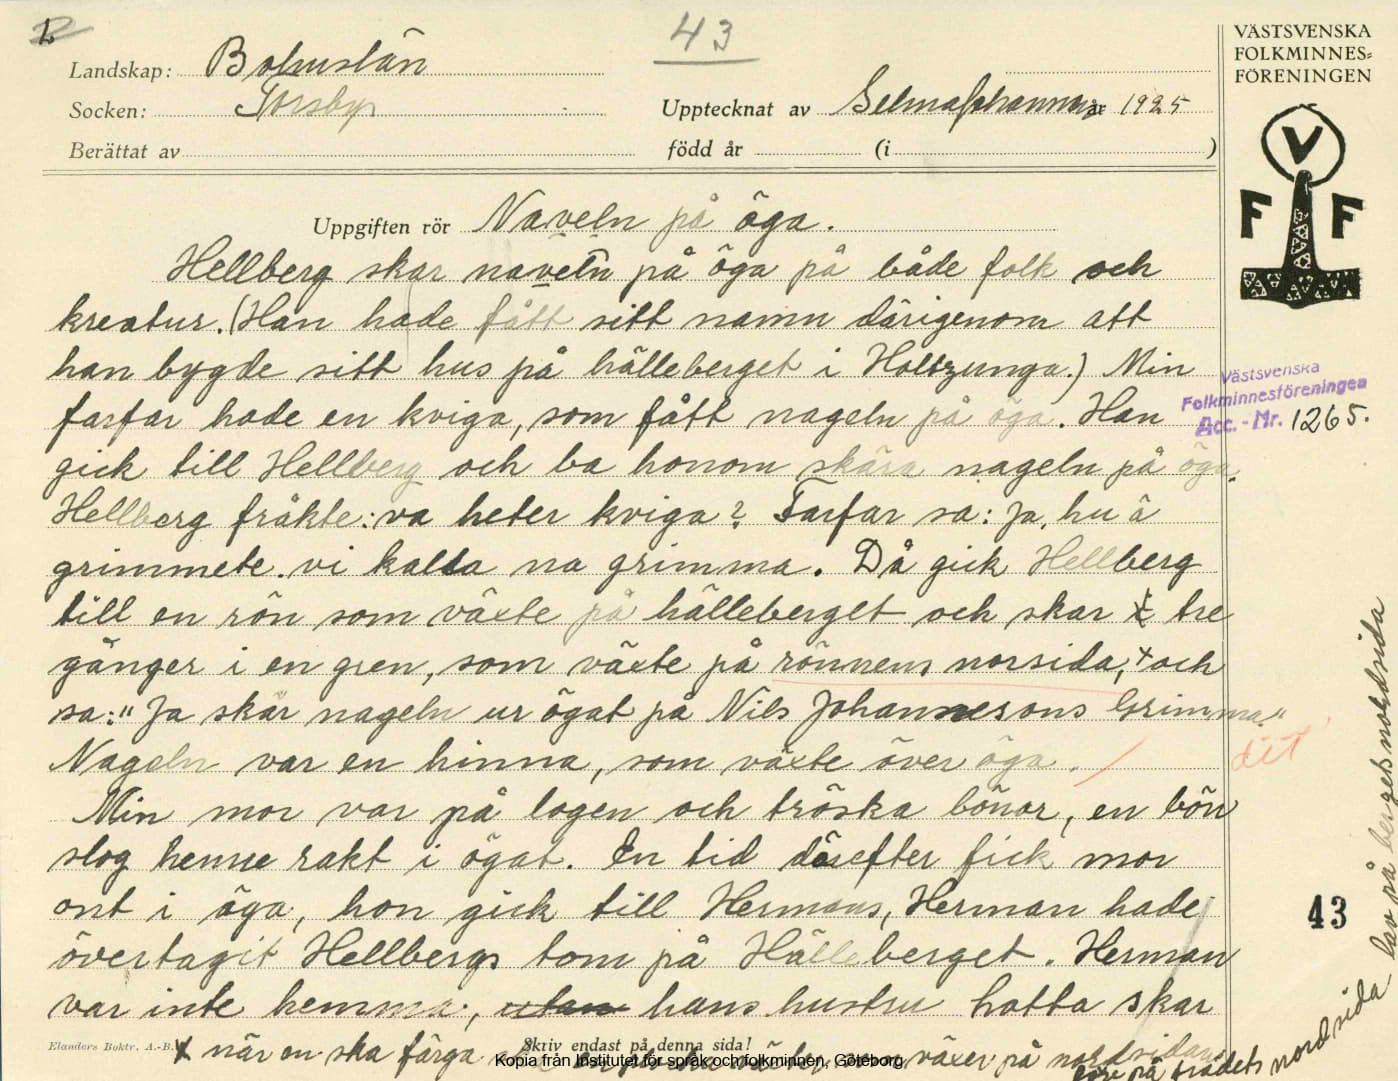 43
Landskap: Bohuslän
Socken: Torsby
Upptecknat av Selma Johannes år 1925
Berättat av
född år (i )
VÄSTSVENSKA
FOLKMINNES=
FÖRENINGEN
V
F F
Uppgiften rör Naveln på öga.
Hellberg skar naveln på öga på både folk och
kreatur. (Han hade fått sitt namn därigenom att
han bygde sitt hus på hälleberget i Holtzunga.) Min
farfar hade en kviga, som fått nageln på öga. Han
gick till Hellberg och ba honom skära nageln på öga.
Hellberg fråkte: va heter kviga? Farfar sa: Ja, hu ä
grimmete. vi kalla na grimma. Då gick Hellberg
till en rön som växte på hälleberget och skar tre
gånger i en gren, som växte på rönnens norsida, x och
sa: "Ja skär nageln ur ögat på Nils Johannesons Grimma"
Nageln var en hinna, som växte över öga.
dit
Min mor var på logen och tröska bönor, en bön
slog henne rakt i ögat. En tid därefter fick mor
ont i öga, hon gick till Hermans, Herman hade
övertagit Hellbergs tom på Hälleberget. Herman
var inte hemma, utan hans hustru hotta skar
Västsvenska
Folkminnesföreningen
Acc.-Nr. 1265.
43
Elanders Boktr. A.-B.
Skriv endast på denna sida!
x när en ska färga växer på nordsidan
på trädets nordsida
lav på bergets nordsida
Kopia från Institutet för språk och folkminnen, Göteborg